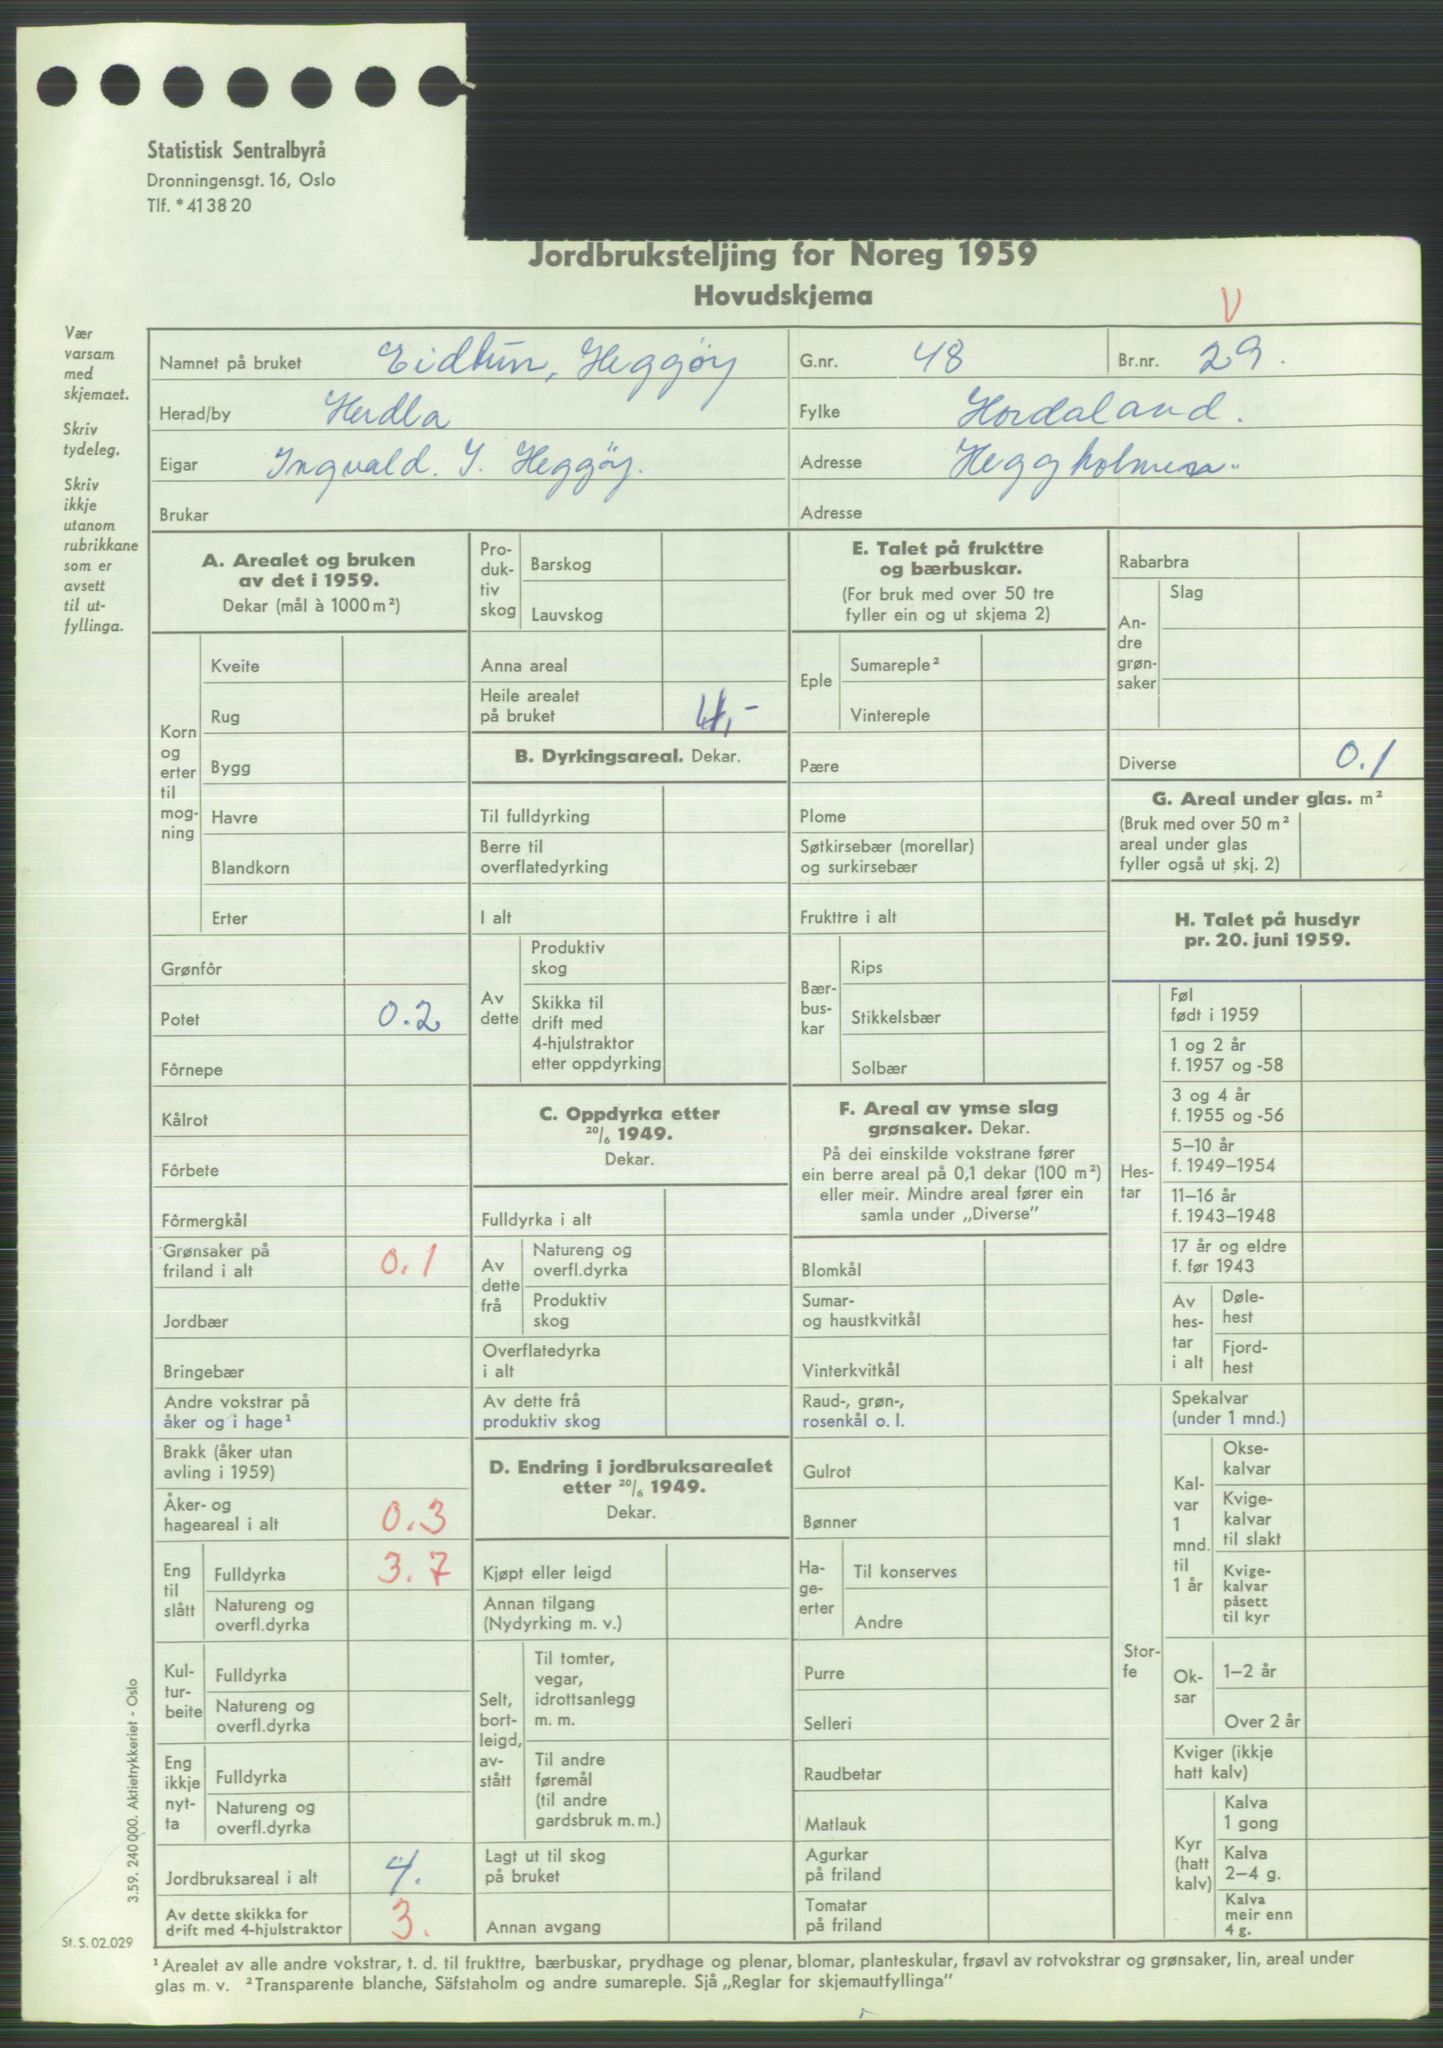 Statistisk Sentralbyrå
Dronningensgt. 16, Oslo
Tlf. *41 38 20
Jordbruksteljing for Noreg 1959
Hovudskjema
V
Vær
varsam
med
skjemaet.
Skriv
tydeleg.
Skriv
ikkje
utanom
rubrikkane
som er
avsett
til ut-
fyllinga.
Namnet på bruket Eidtun, Heggøy G.nr. 48 Br.nr. 29.
Herad/by Herdla Fylke Hordaland.
Eigar Ingvald. I. Heggöy. Adresse Heggholmen
Brukar Adresse
A. Arealet og bruken
av det i 1959.
Dekar (mål à 1000 m²)
Korn
og
erter
til
mog-
ning
Kveite
Rug
Bygg
Havre
Blandkorn
Erter
Grønfôr
Potet 0.2
Fôrnepe
Kålrot
Fôrbete
Fôrmergkål
Grønsaker på
friland i alt 0.1
Jordbær
Bringebær
Andre vokstrar på
åker og i hage¹
Brakk (åker utan
avling i 1959)
Åker- og
hageareal i alt 0.3
Eng
til
slått
Fulldyrka 3.7
Natureng og
overfl.dyrka
Kul-
tur-
beite
Fulldyrka
Natureng og
overfl.dyrka
Eng
ikkje
nyt-
ta
Fulldyrka
Natureng og
overfl.dyrka
Jordbruksareal i alt 4.
Av dette skikka for
drift med 4-hjulstraktor 3.
Pro-
duk-
tiv
skog
Barskog
Lauvskog
Anna areal
Heile arealet
på bruket 4,-
B. Dyrkingsareal. Dekar.
Til fulldyrking
Berre til
overflatedyrking
I alt
Av
dette
Produktiv
skog
Skikka til
drift med
4-hjulstraktor
etter oppdyrking
C. Oppdyrka etter
20/6 1949.
Dekar.
Fulldyrka i alt
Av
dette
frå
Natureng og
overfl.dyrka
Produktiv
skog
Overflatedyrka
i alt
Av dette frå
produktiv skog
D. Endring i jordbruksarealet
etter 20/6 1949.
Dekar.
Kjøpt eller leigd
Annan tilgang
(Nydyrking m. v.)
Selt,
bort-
leigd,
av-
stått
Til tomter,
vegar,
idrottsanlegg
m. m.
Til andre
føremål
(til andre
gardsbruk m. m.)
Lagt ut til skog
på bruket
Annan avgang
E. Talet på frukttre
og bærbuskar.
(For bruk med over 50 tre
fyller ein og ut skjema 2)
Eple
Sumareple²
Vintereple
Pære
Plome
Søtkirsebær (morellar)
og surkirsebær
Frukttre i alt
Bær-
bus-
kar
Rips
Stikkelsbær
Solbær
F. Areal av ymse slag
grønsaker. Dekar.
På dei einskilde vokstrane fører
ein berre areal på 0,1 dekar (100 m²)
eller meir. Mindre areal fører ein
samla under „Diverse”
Blomkål
Sumar-
og haustkvitkål
Vinterkvitkål
Raud-, grøn-,
rosenkål o. l.
Gulrot
Bønner
Ha-
ge-
erter
Til konserves
Andre
Purre
Selleri
Raudbetar
Matlauk
Agurkar
på friland
Tomatar
på friland
Rabarbra
An-
dre
grøn-
saker
Slag
Diverse 0.1
G. Areal under glas. m²
(Bruk med over 50 m²
areal under glas
fyller også ut skj. 2)
H. Talet på husdyr
pr. 20. juni 1959.
Hes-
tar
Føl
født i 1959
1 og 2 år
f. 1957 og -58
3 og 4 år
f. 1955 og -56
5–10 år
f. 1949–1954
11–16 år
f. 1943–1948
17 år og eldre
f. før 1943
Av
hes-
tar
i alt
Døle-
hest
Fjord-
hest
Stor-
fe
Spekalvar
(under 1 mnd.)
Kal-
var
1
mnd.
til
1 år
Okse-
kalvar
Kvige-
kalvar
til slakt
Kvige-
kalvar
påsett
til kyr
Ok-
sar
1–2 år
Over 2 år
Kviger (ikkje
hatt kalv)
Kyr
(hatt
kalv)
Kalva
1 gong
Kalva
2–4 g.
Kalva
meir enn
4 g.
3.59. 240 000. Aktietrykkeriet - Oslo
St. S. 02.029
¹ Arealet av alle andre vokstrar, t. d. til frukttre, bærbuskar, prydhage og plenar, blomar, planteskular, frøavl av rotvokstrar og grønsaker, lin, areal under
glas m. v. ² Transparente blanche, Säfstaholm og andre sumareple. Sjå „Reglar for skjemautfyllinga”